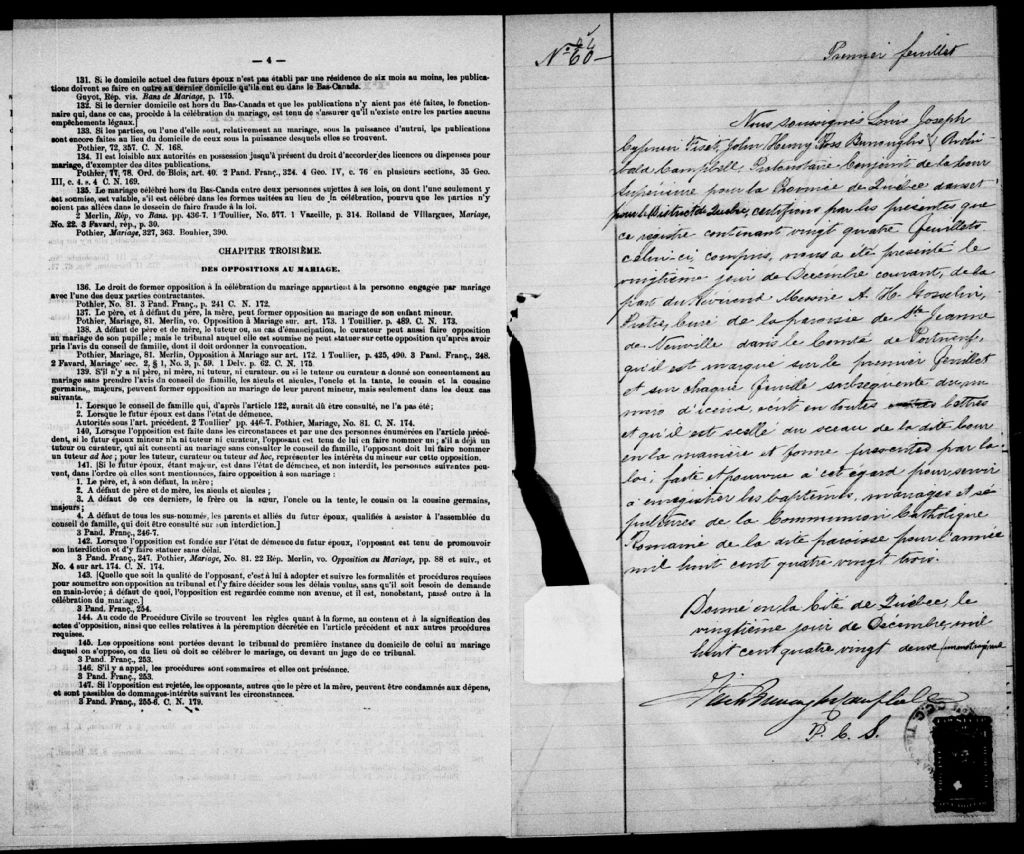 — 4 —
131. Si le domicile actuel des futurs époux n'est pas établi par une résidence de six mois au moins, les publica-
tions doivent se faire en outre au dernier domicile qu'ils ont eu dans le Bas-Canada.
Guyot, Rép. vis. Bans de Mariage, p. 175.
132. Si le dernier domicile est hors du Bas-Canada et que les publications n'y aient pas été faites, le fonction-
naire qui, dans ce cas, procède à la célébration du mariage, est tenu de s'assurer qu'il n'existe entre les parties aucuns
empêchements légaux.]
133. Si les parties, ou l'une d'elle sont, relativement au mariage, sous la puissance d'autrui, les publications
sont encore faites au lieu du domicile de ceux sous la puissance desquels elles se trouvent.
Pothier, 72, 357. C. N. 168.
134. Il est loisible aux autorités en possession jusqu'à présent du droit d'accorder des licences ou dispenses pour
mariage, d'exempter des dites publications.
Pothier, 77, 78. Ord. de Blois, art. 40. 2 Pand. Franç., 324. 4 Geo. IV, c. 76 en plusieurs sections, 35 Geo.
III, c. 4. s. 4 C. N. 169.
135. Le mariage célébré hors du Bas-Canda entre deux personnes sujettes à ses lois, ou dont l'une seulement y
est soumise, est valable, s'il est célébré dans les formes usitées au lieu de la célébration, pourvu que les parties n'y
soient pas allées dans le dessein de faire fraude à la loi.
2 Merlin, Rép, vo Bans. pp. 436-7. 1 Toullier, No. 577. 1 Vazeille, p. 314. Rolland de Villargues, Mariage,
No. 22. 3 Favard, rép., p. 30.
Pothier, Mariage, 327, 363. Bouhier, 390.
CHAPITRE TROISIÈME.
DES OPPOSITIONS AU MARIAGE.
136. Le droit de former opposition à la célébration du mariage appartient à la personne engagée par mariage
avec l'une des deux parties contractantes.
Pothier, No. 81. 3 Pand. Franç., p. 241 C. N. 172.
137. Le père, et à défaut du père, la mère, peut former opposition au mariage de son enfant mineur.
Pothier, Mariage, 81. Merlin, vo. Opposition à Mariage sur. art. 173. 1 Touillier p. 489. C. N. 173.
138. A défaut de père et de mère, le tuteur ou, au cas d'émancipation, le curateur peut aussi faire opposition
au mariage de son pupille ; mais le tribunal auquel elle est soumise ne peut statuer sur cette opposition qu'après avoir
pris l'avis du conseil de famille, dont il doit ordonner la convocation.
Pothier, Mariage, 81. Merlin, Opposition à Mariage sur art. 172. 1 Toullier, p. 425, 490. 3 Pand. Franç., 248.
2 Favard, Mariage' sec. 2, § 1, No. 3, p. 59. 1 Delv. p. 62. C. N. 175.
139. S'il n'y a ni père, ni mère, ni tuteur, ni curateur. ou si le tuteur ou curateur a donné son consentement au
mariage sans prendre l'avis du conseil de famille, les aïeuls et aïeules, l'oncle et la tante, le cousin et la cousine
germains, majeurs, peuvent former opposition au mariage de leur parent mineur, mais seulement dans les deux cas
suivants.
1. Lorsque le conseil de famille qui, d'après l'article 122, aurait dû être consulté, ne l'a pas été ;
2. Lorsque le futur époux est dans l'état de démence.
Autorités sous l'art. précédent. 2 Toullier' pp. 446-7. Pothier, Mariage, No. 81. C. N. 174.
140. Lorsque l'opposition est faite dans les circonstances et par une des personnes énumérées en l'article précé-
dent, si le futur époux mineur n'a ni tuteur ni curateur, l'opposant est tenu de lui en faire nommer un ; s'il a déjà un
tuteur ou curateur, qui ait consenti au mariage sans consulter le conseil de famille, l'opposant doit lui faire nommer
un tuteur ad hoc ; pour les tuteur, curateur ou tuteur ad hoc, représenter les intérêts du mineur sur cette opposition.
141. [Si le futur époux, étant majeur, est dans l'état de démence, et non interdit, les personnes suivantes peu-
vent, dans l'ordre où elles sont mentionnées, faire opposition à son mariage :
1. Le père, et, à son défaut, la mère ;
2. A défaut de père et de mère, les aïeuls et aïeules ;
3. A défaut de ces derniers, le frère ou la sœur, l'oncle ou la tente, le cousin ou la cousine germains,
majeurs ;
4. A défaut de tous les sus-nommés, les parents et alliés du futur époux, qualifiés à assister à l'assemblée du
conseil de famille, qui doit être consulté sur son interdiction.]
3 Pand. Franç., 246-7.
142. Lorsque l'opposition est fondée sur l'état de démence du futur époux, l'opposant est tenu de promouvoir
son interdiction et d'y faire statuer sans délai.
3 Pand. Franç., 247. Pothier, Mariage, No. 81. 22 Rép. Merlin, vo. Opposition au Mariage, pp. 88 et suiv., et
No. 4 sur art. 174. C. N. 174.
143. [Quelle que soit la qualité de l'opposant, c'est à lui à adopter et suivre les formalités et procédures requises
pour soumettre son opposition au tribunal et l'y faire décider sous les délais voulus, sans qu'il soit besoin de demande
en main-levée ; à défaut de quoi, l'opposition est regardée comme non avenue, et il est, nonobstant, passé outre à la
célébration du mariage.]
3 Pand. Franç., 254.
144. Au code de Procédure Civile se trouvent les règles quant à la forme, au contenu et à la signification des
actes d'opposition, ainsi que celles relatives à la péremption décrétée en l'article précédent et aux autres procédures
requises.
145. Les oppositions sont portées devant le tribunal de première instance du domicile de celui au mariage
duquel on s'oppose, ou du lieu où doit se célébrer le mariage, ou devant un juge de ce tribunal.
3 Pand. Franç., 253.
146. S'il y a appel, les procédures sont sommaires et elles ont préséance.
3 Pand. Franç., 253.
147. Si l'opposition est rejetée, les opposants, autres que le père et la mère, peuvent être condamnés aux dépens,
et sont passibles de dommages-intérêts suivant les circonstances.
3 Pand. Franç., 255-6. C. N. 179.
No 60
Premier feuillet
Nous soussignés Louis Joseph
Cyprien Fiset, John Henry Ross Burroughs & Archi-
bald Campbell, Protonotaire Conjoint de la Cour
Supérieure pour la Province de Québec dans et
pour le District de Québec, certifions par les présentes que
ce régistre contenant vingt quatre feuillets
celui-ci compris, nous a été présenté le
vingtième jour de Decembre courant, de la
part du Révérend Messire A. H. Gosselin,
Ptre, Curé de la paroisse de Ste Jeanne
de Neuville dans le Comté de Portneuf,
qu'il est marqué sur le premier feuillet
et sur chaque feuille subsequente du nu-
mero d'icelui, écrit en toutes lettres
et qu'il est scellé du sceau de la dite Cour
en la manière et forme prescrites par la
loi, faite et pourvue à cet égard pour servir
à enregistrer les baptêmes, mariages et sé-
pultures de la Communion Catholique
Romaine de la dite paroisse pour l'année
mil huit cent quatre vingt trois.
Donné en la Cité de Québec, le
vingtième jour de Decembre, mil
huit cent quatre vingt deux
Fiset Burroughs Campbell
P. C. S.